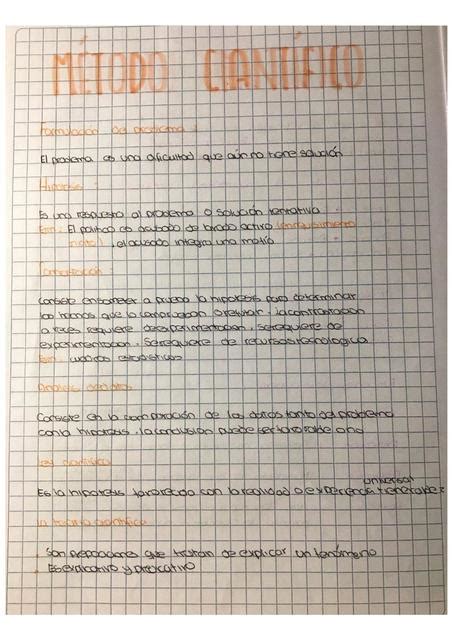 MÉTODO CIENTÍFICO
Formulación del problema :
El problema es una dificultad que aún no tiene solución
Hipótesis :
Es una respuesta al problema o solución tentativa
Ejm: El político es acusado de lavado activo (enriquecimiento
ilícito), el acusado integra una mafia
Contrastación :
Consiste en someter a prueba la hipótesis para determinar
los hechos que la comprueban o rechazan, la contrastación
a veces requiere de experimentación, se requiere de
experimentación, se requiere de recursos tecnológica
Ejm:
Análisis de datos
Consiste en la comparación de los datos tanto del problema
con la hipótesis, la conclusión puede ser la
Ley científica
universal
Es la hipótesis con la realidad o experiencia
la teoría científica
Son proposiciones que tratan de explicar un fenómeno
Es explicativo y predicativo